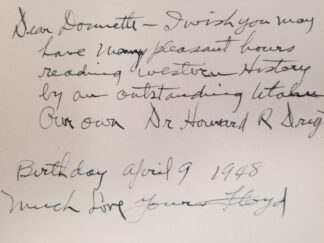 Dear Donnette - I wish you may
have many pleasant hours
reading Western History
by an outstanding Utahn
Our own Dr Howard R Drigs
Birthday April 9 1948
Much Love Yours Floyd